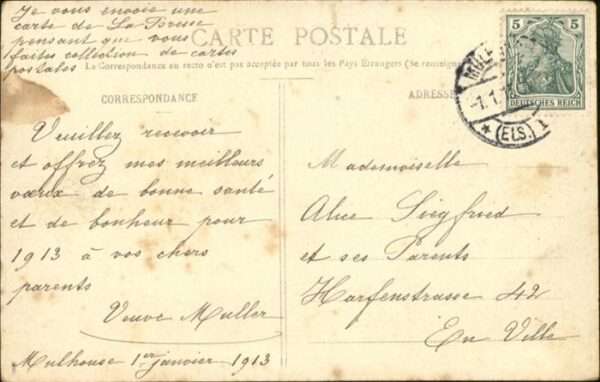 Je vous envoie une
carte de La Bresse
pensant que vous
faites collection de cartes
postales
CARTE POSTALE
La Correspondance au recto n'est pas acceptée par tous les Pays Etrangers (Se renseigner
CORRESPONDANCE
ADRESSE
Veuillez recevoir
et offrez mes meilleurs
vœux de bonne santé
et de bonheur pour
1913 à vos chers
parents
Veuve Muller
Mulhouse 1er janvier 1913
5 5
DEUTSCHES REICH
MÜLH
-1.1.
* (ELS.) 1
Mademoiselle
Alice Siegfried
et ses Parents
Harfenstrasse 42
En Ville